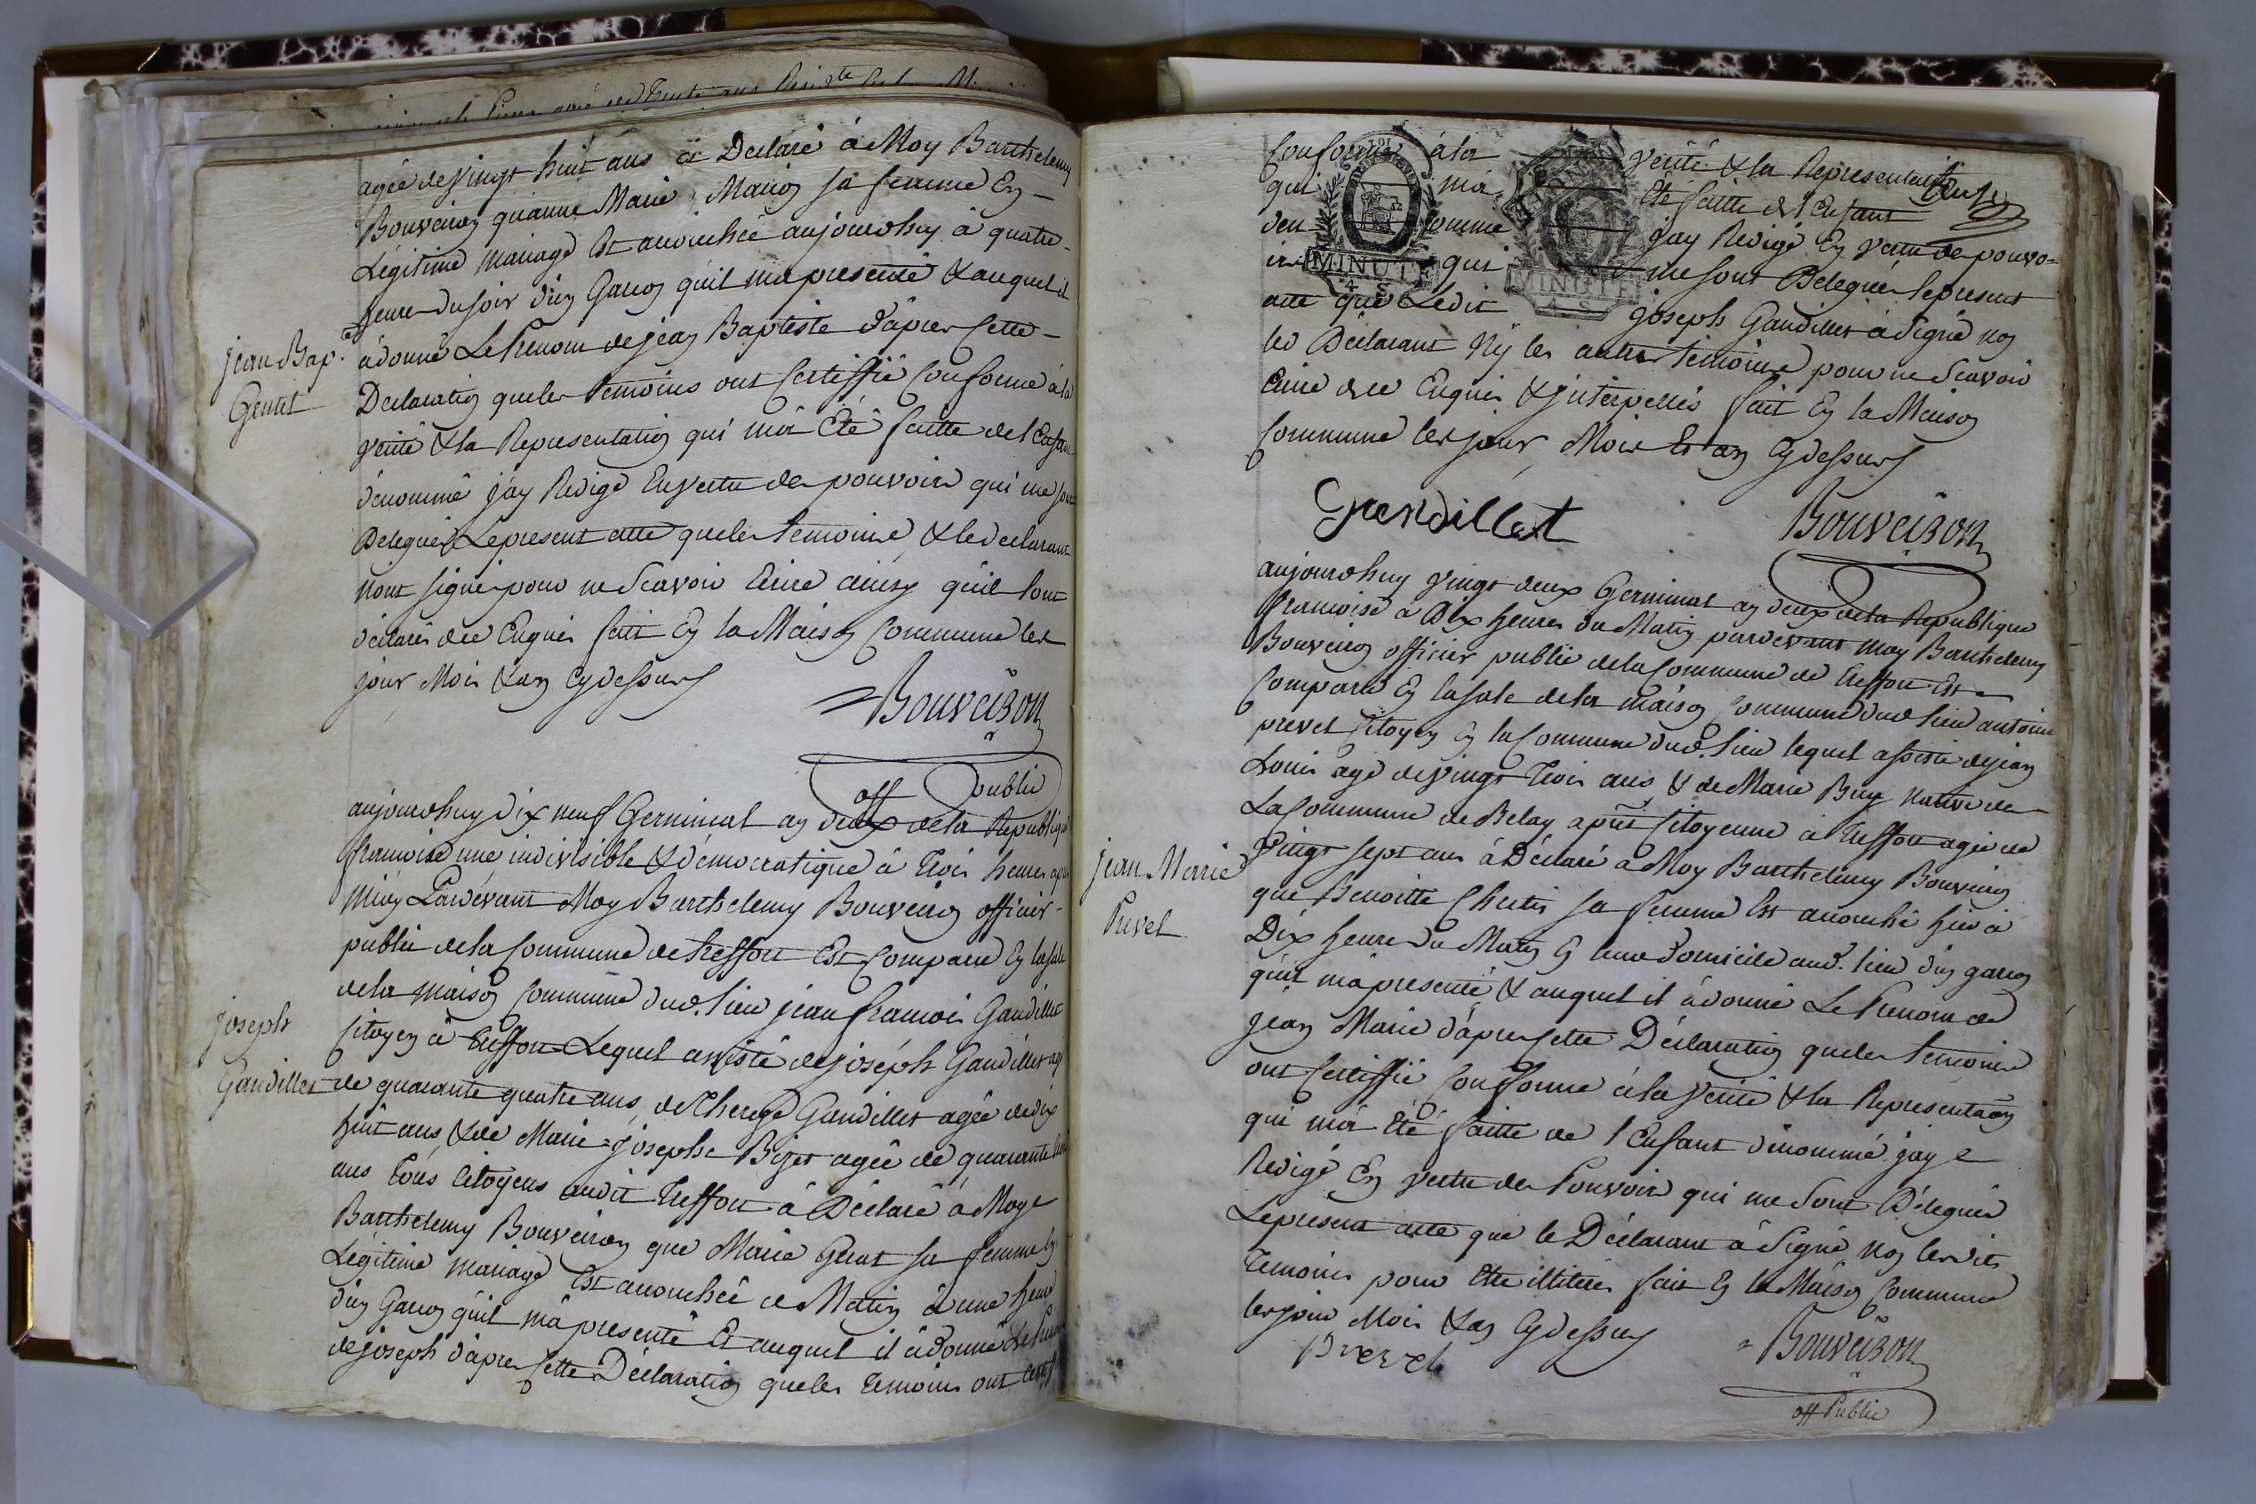 agée de vingt huit ans a Declaré à Moy Barthelemy
Bouveiron qu'anne Marie Marion sa femme En
Légitime mariage Est accouchée aujourdhuy à quatre
heure du soir d'un Garcon quil m'a presenté & auquel il
jean Bap.te
Gentit
à donné Le Prenom de jean Baptiste d'apres Cette
Declaration que les temoins ont Certiffié Conforme à la
verité & la Representation qui m'a Eté faitte de l'Enfant
dénommé j'ay Redigé En vertu des pouvoirs qui me sont
Delegués Le present acte que les temoins & le declarant
n'ont signé pour ne Scavoir Ecrire ainsy qu'il l'ont
déclarés de ce Enquis fait En la Maison Commune les
jour Mois & an Cy dessus
Bouveiron
off public
aujourdhuy dix neuf Germinal an deux de la Republique
francoise une indivisible & démocratique à trois heures après
Midy Pardevant Moy Barthelemy Bouveiron officier
public de la Commune de treffort Est Comparu En la sale
de la maison Commune dud. lieu jean francois Gandillet
joseph
Gandillet
Citoyen à treffort Lequel assisté de joséph Gandillet agé
de quarante quatre ans, de Therese Gandillet agée de dix
huit ans, & de Marie josephe Bizet agée de quarante
ans tous Citoyens audit treffort à Déclaré à Moy
Barthelemy Bouveiron que Marie Gerat sa femme En
Légitime mariage Est accouchée ce Matin à une heure
d'un Garcon quil m'a presenté Et auquel il à donné Le Prenom
de joseph d'apres Cette Déclaration que les temoins ont certif
Conforme à la verité & la Representation
qui m'a Eté faitte de l'Enfant
denomme j'ay Redigé En vertu de pouvo=
irs qui me sont Delegués le present
acte que Ledit joseph Gandillet à Signé non
le Déclarant Ny les autres témoins pour ne Scavoir
Ecrire de ce Enquis & jnterpellés fait En la Maison
Commune les jour, Mois Et an Cy dessus
MINUTE
4 S
MINUTE
4 S
Grendillest
Bouveiron
aujourdhuy vingt deux Germinal an deux de la Republique
francoise à Dix heures du Matin pardevant moy Barthelemy
Bouveiron officier public de la Commune de treffort Est
Comparu En la sale de la maison Commune dud. lieu antoine
prevel Citoyen En la Commune dud. lieu lequel assisté de jean
Louis agé de vingt trois ans & de Marie Buy native de
La Commune de Belay apnt Citoyenne à treffort agée de
jean Marie
Prevel
vingt sept ans à Déclaré à Moy Barthelemy Bouveiron
que Benoitte Chertis sa femme Est accouché hier à
Dix heure du Matin En leur Domicile aud. lieu d'un garcon
qu'il m'a presenté & auquel il à donné Le Prenom de
jean Marie d'apres Cette Déclaration que les temoins
ont Certiffié Conforme à la verité & la Representaon
qui m'a Eté faitte de l'Enfant dénommé j'ay
Redigé En vertu des Pouvoirs qui me Sont Délegués
Le present acte que le Déclarant à Signé non lesdits
temoins pour Etre illiterés fait En la Maison Commune
les jour Mois & an Cy dessus
Prevel
Bouveiron
off Public